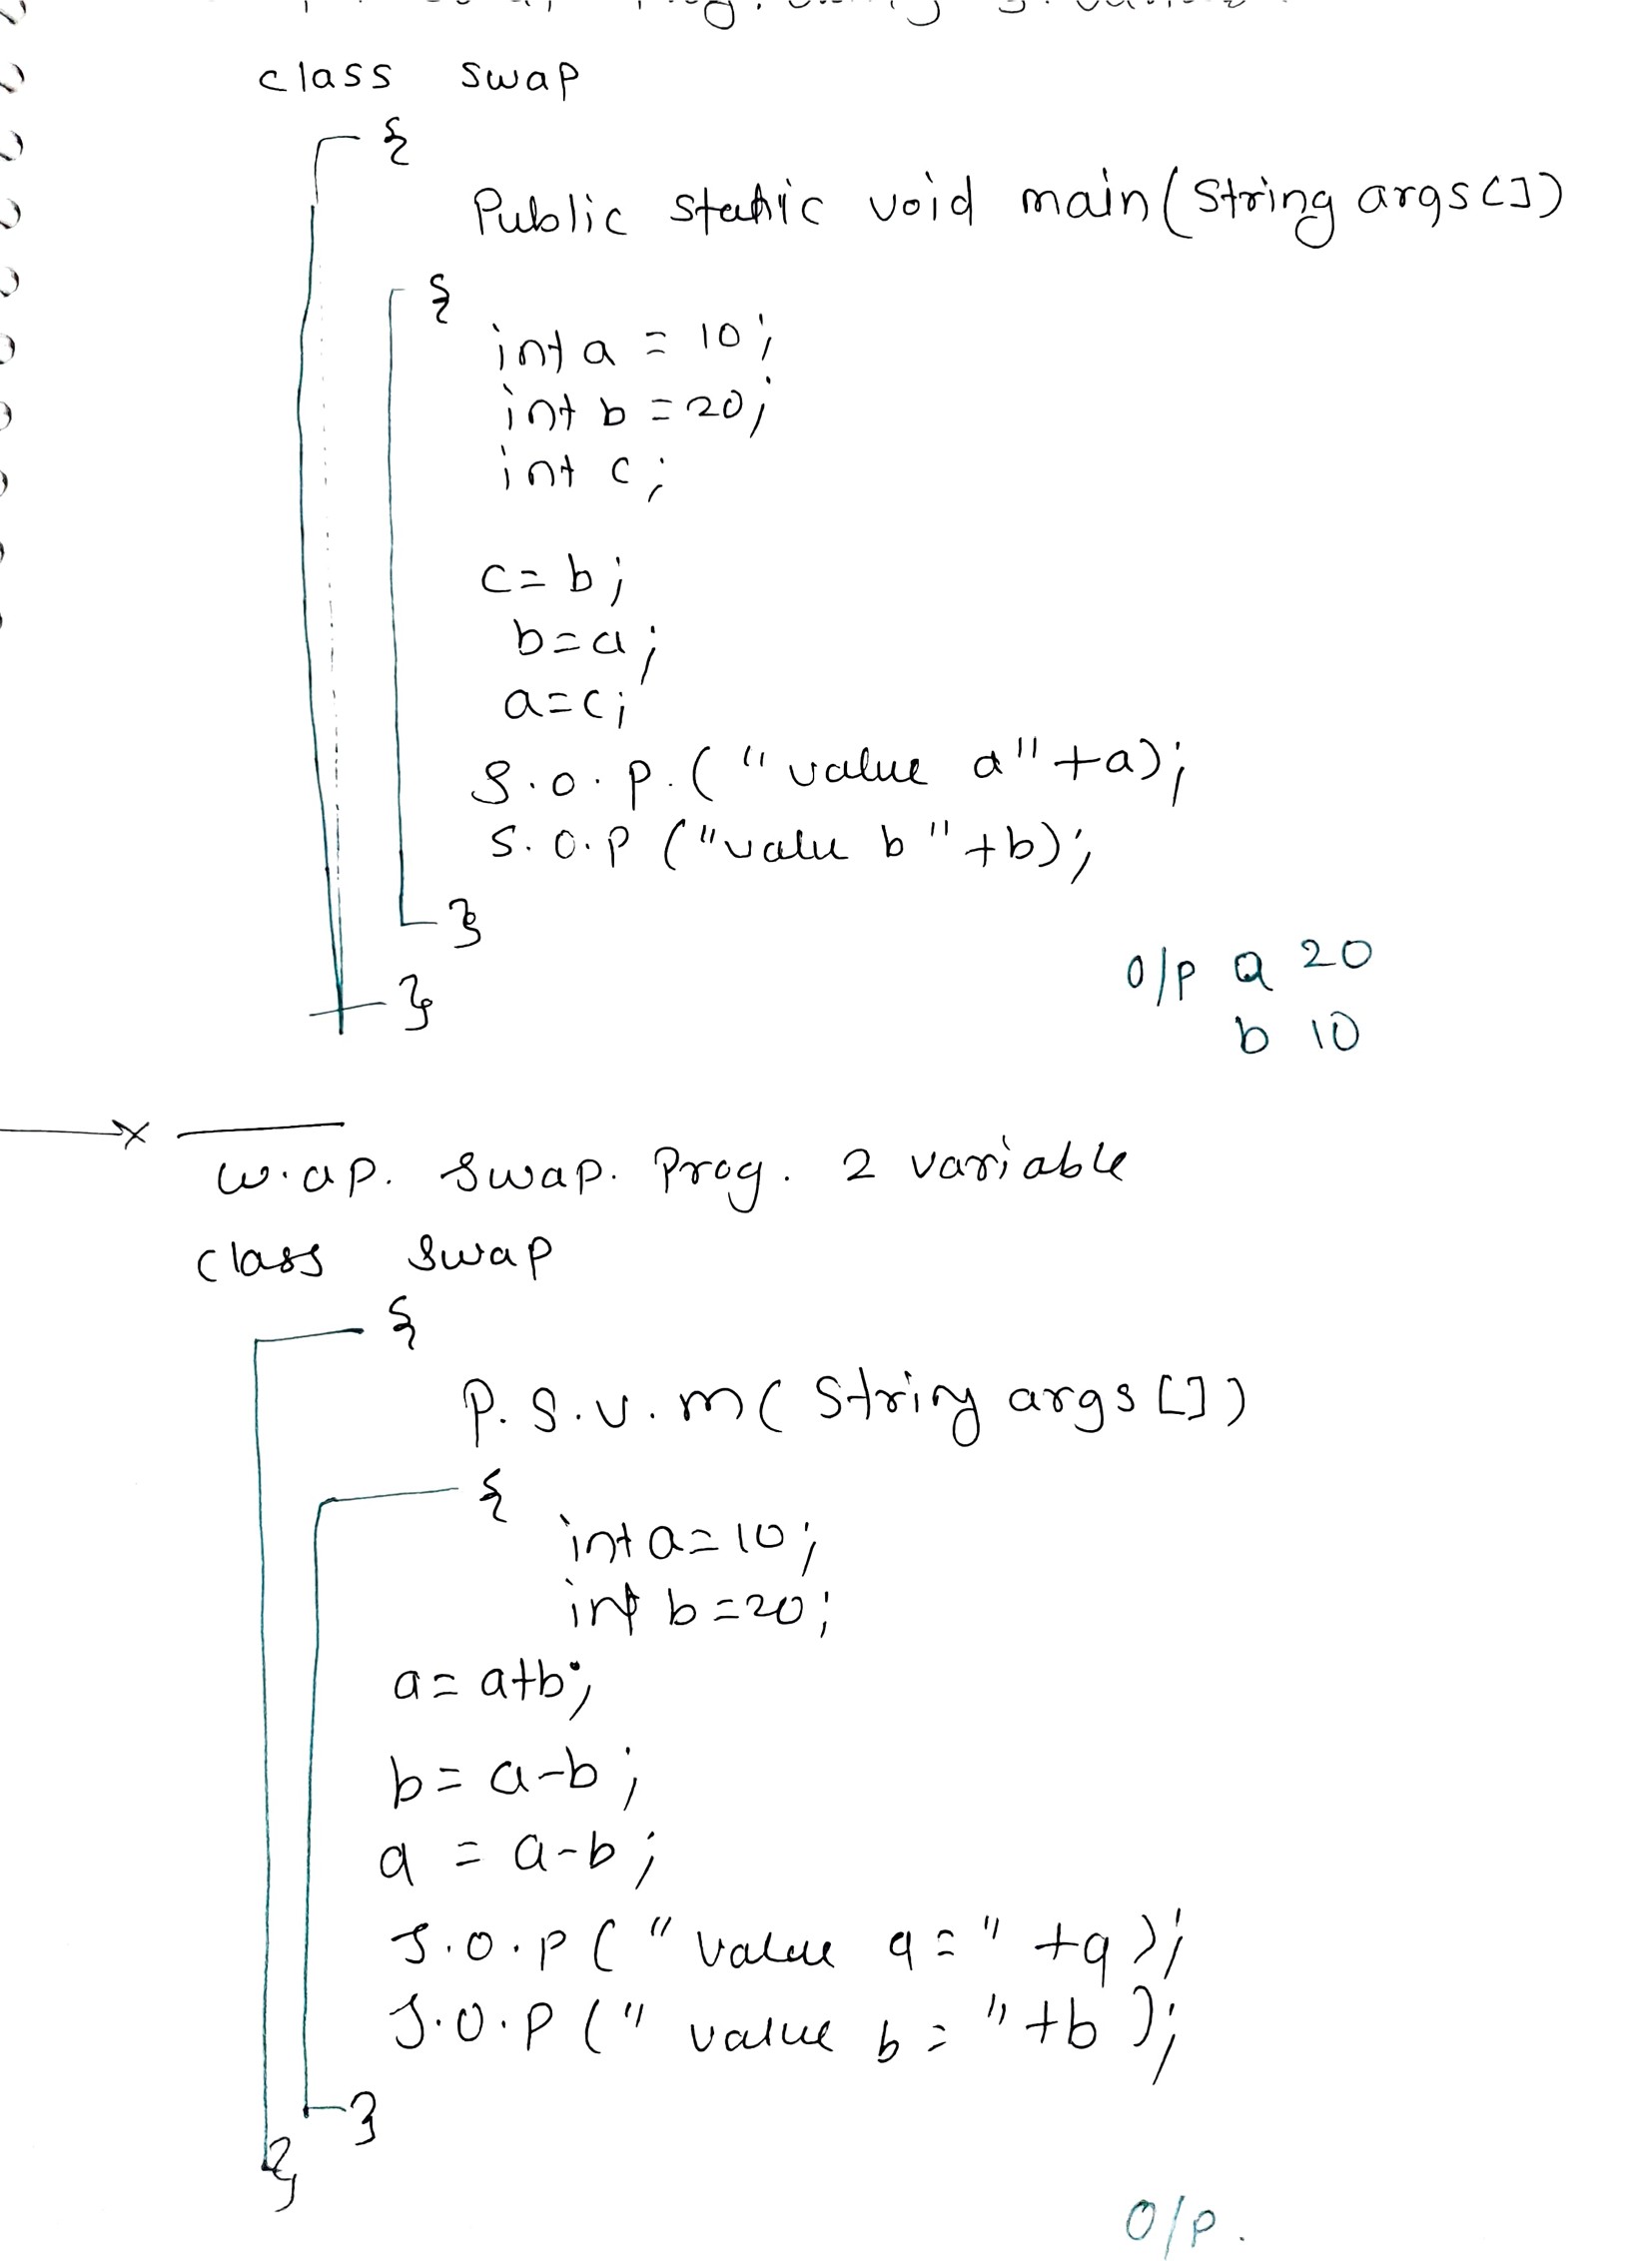 class swap
{
Public static void main(String args[])
{
int a = 10;
int b = 20;
int c;
c = b;
b=a;
a=c;
S.o.p.("value a"+a);
S.O.P ("valu b"+b);
}
}
O/P a 20
b 10
w.ap. swap. Prog. 2 variable
class swap
{
P.S.v.m( String args[])
{
int a=10;
int b=20;
a= a+b;
b= a-b;
a = a-b;
S.o.p("value a=" +a);
S.O.P(" value b = "+b );
}
}
O/P.